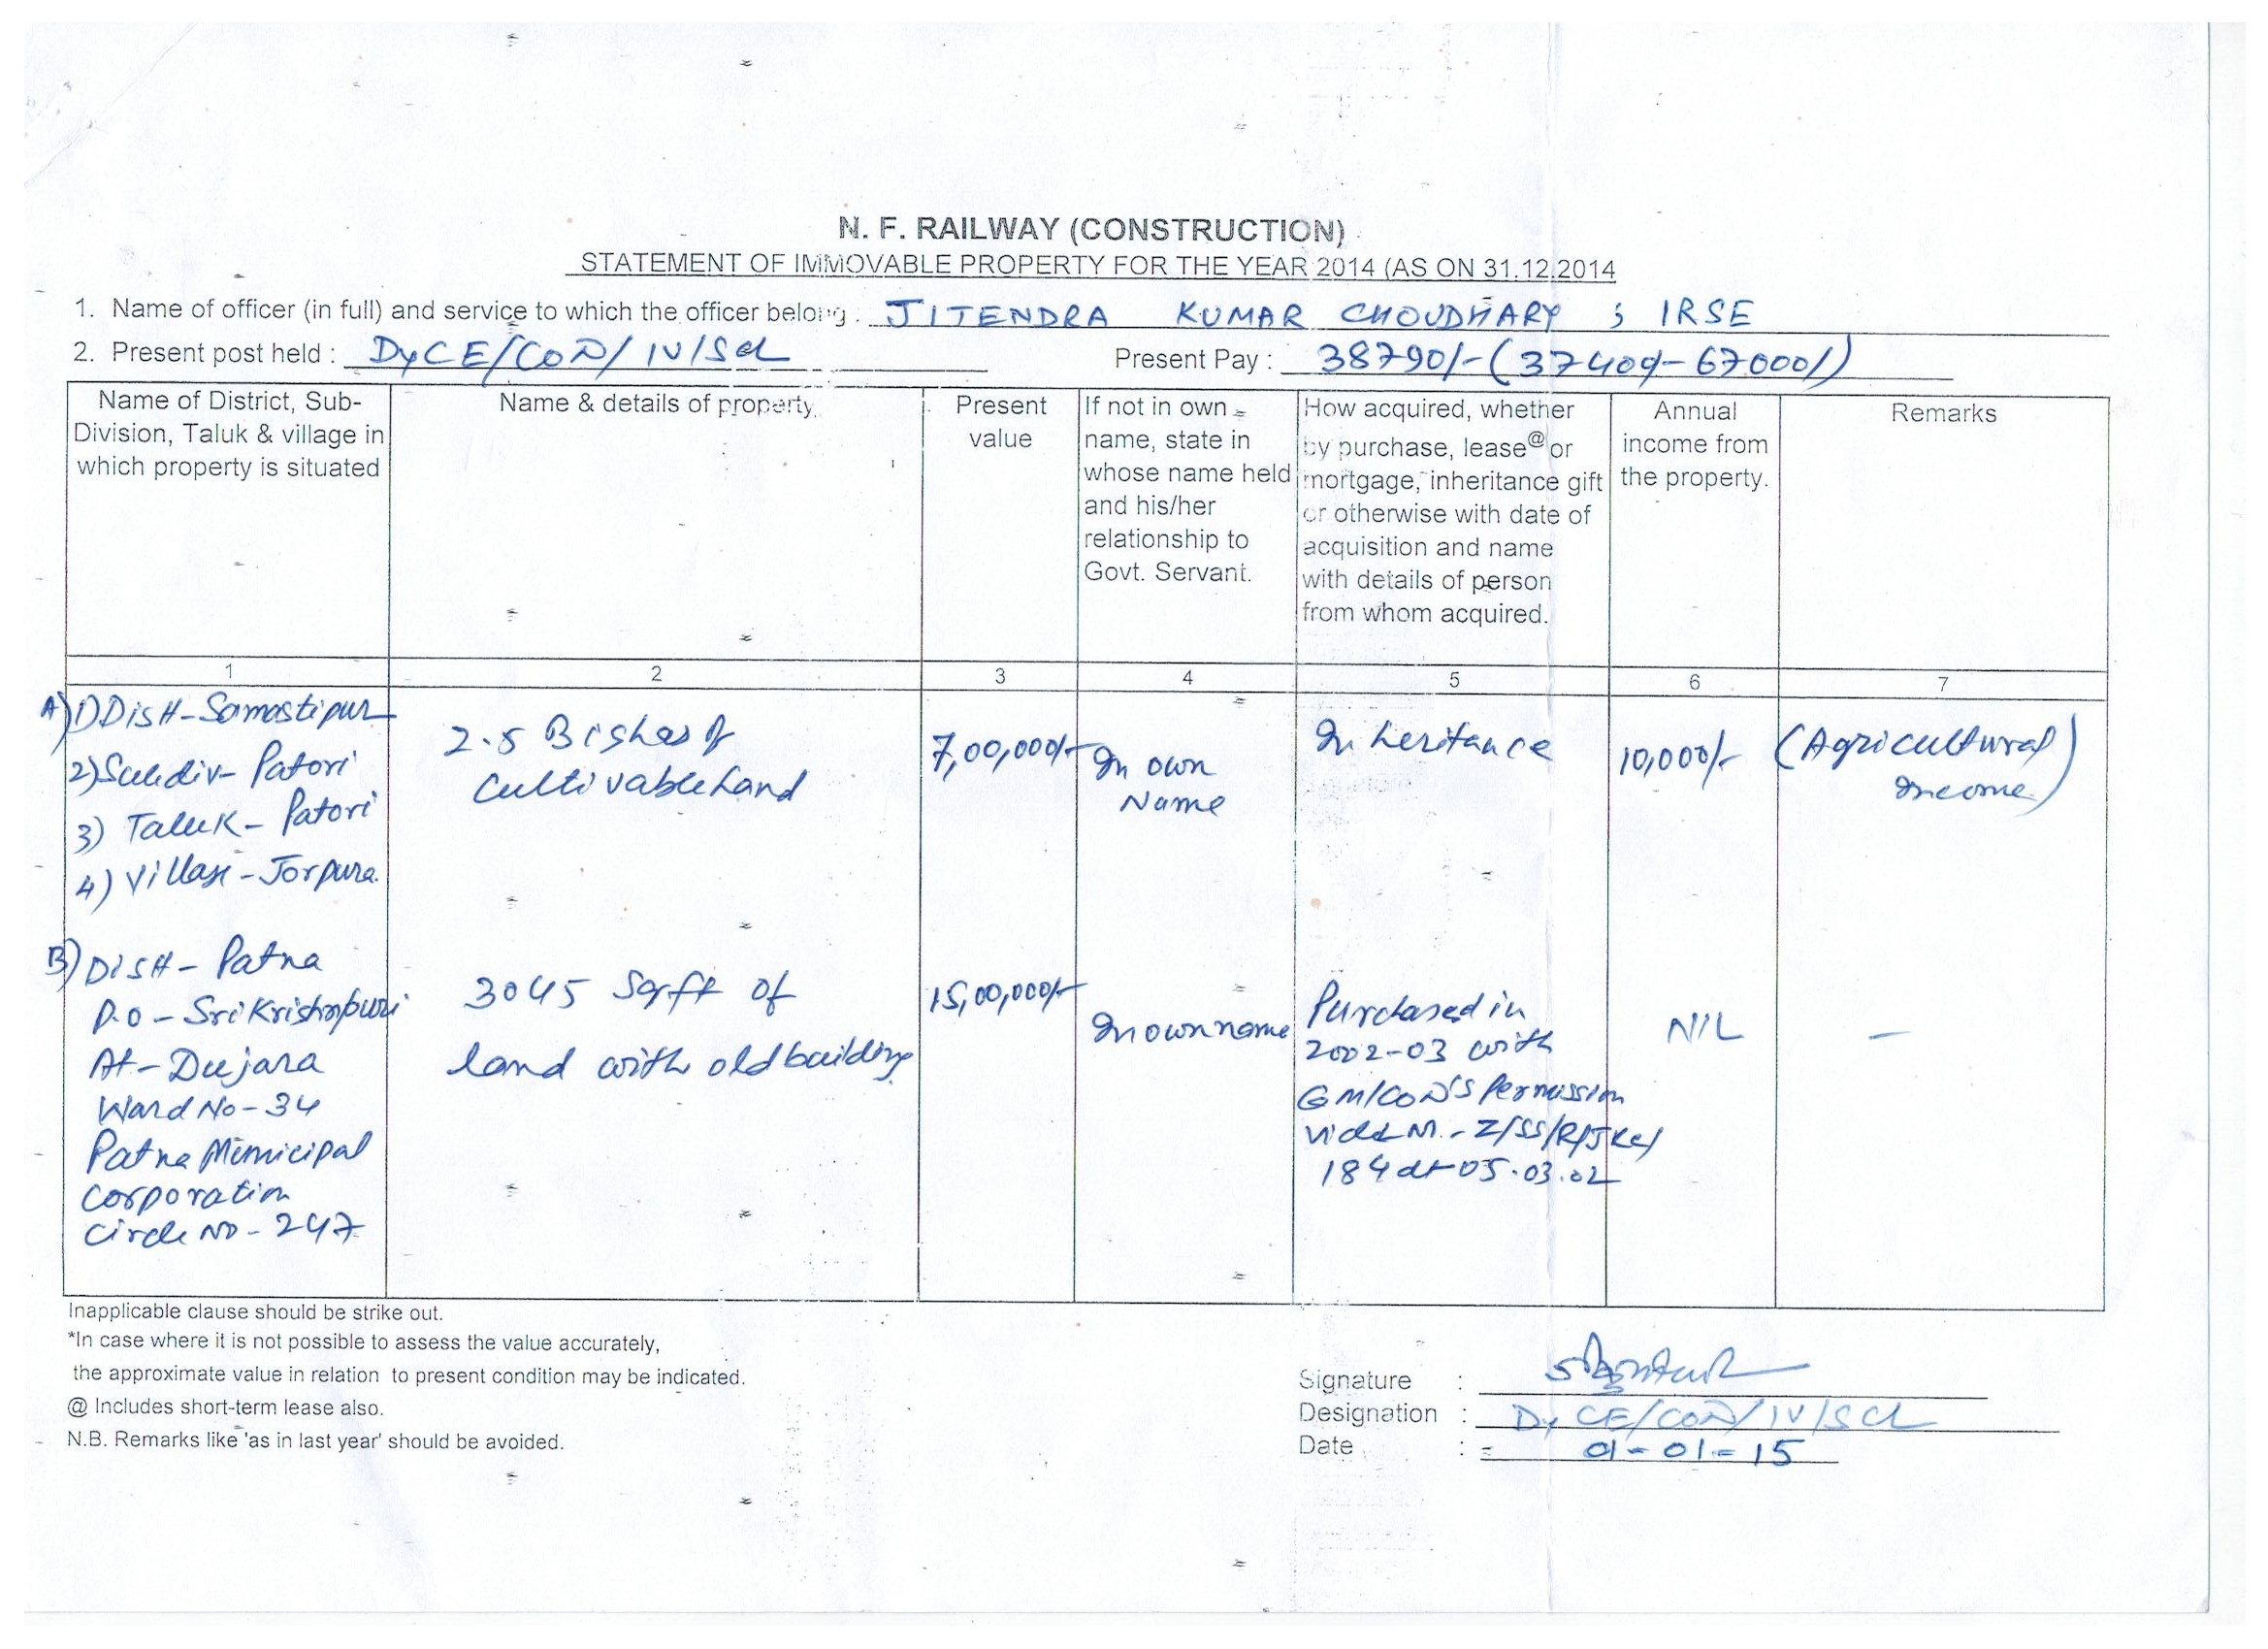 N. F. RAILWAY (CONSTRUCTION)
STATEMENT OF IMMOVABLE PROPERTY FOR THE YEAR 2014 (AS ON 31.12.2014
1. Name of officer (in full) and service to which the officer belong : JITENDRA KUMAR CHOUDHARY ; IRSE
2. Present post held : DyCE/CON/IV/SCL Present Pay : 38790/-(37400/-67000/)
Name of District, Sub-
Division, Taluk & village in
which property is situated
Name & details of property
Present
value
If not in own
name, state in
whose name held
and his/her
relationship to
Govt. Servant.
How acquired, whether
by purchase, lease@ or
mortgage, inheritance gift
or otherwise with date of
acquisition and name
with details of person
from whom acquired.
Annual
income from
the property.
Remarks
1 2 3 4 5 6 7
A) 1) Distt-Samastipur
2) Subdiv- Patori
3) Taluk- Patori
4) Village - Jorpura.
2.5 Bighas of
Cultivable Land
7,00,000/-
In own
Name
Inheritance
10,000/-
(Agricultural
Income)
B) Distt- Patna
P.O - Sri Krishnapuri
At- Dujara
Ward No-34
Patna Municipal
Corporation
Circle No - 247
3045 Sqft of
land with old building
15,00,000/-
In own name
Purchased in
2002-03 with
GM/CON'S Permission
184 dt 05.03.02
NIL
-
Inapplicable clause should be strike out.
*In case where it is not possible to assess the value accurately,
the approximate value in relation to present condition may be indicated.
@ Includes short-term lease also.
N.B. Remarks like 'as in last year' should be avoided.
Signature :
Designation : Dy CE/CON/IV/SCL
Date : 01-01-15